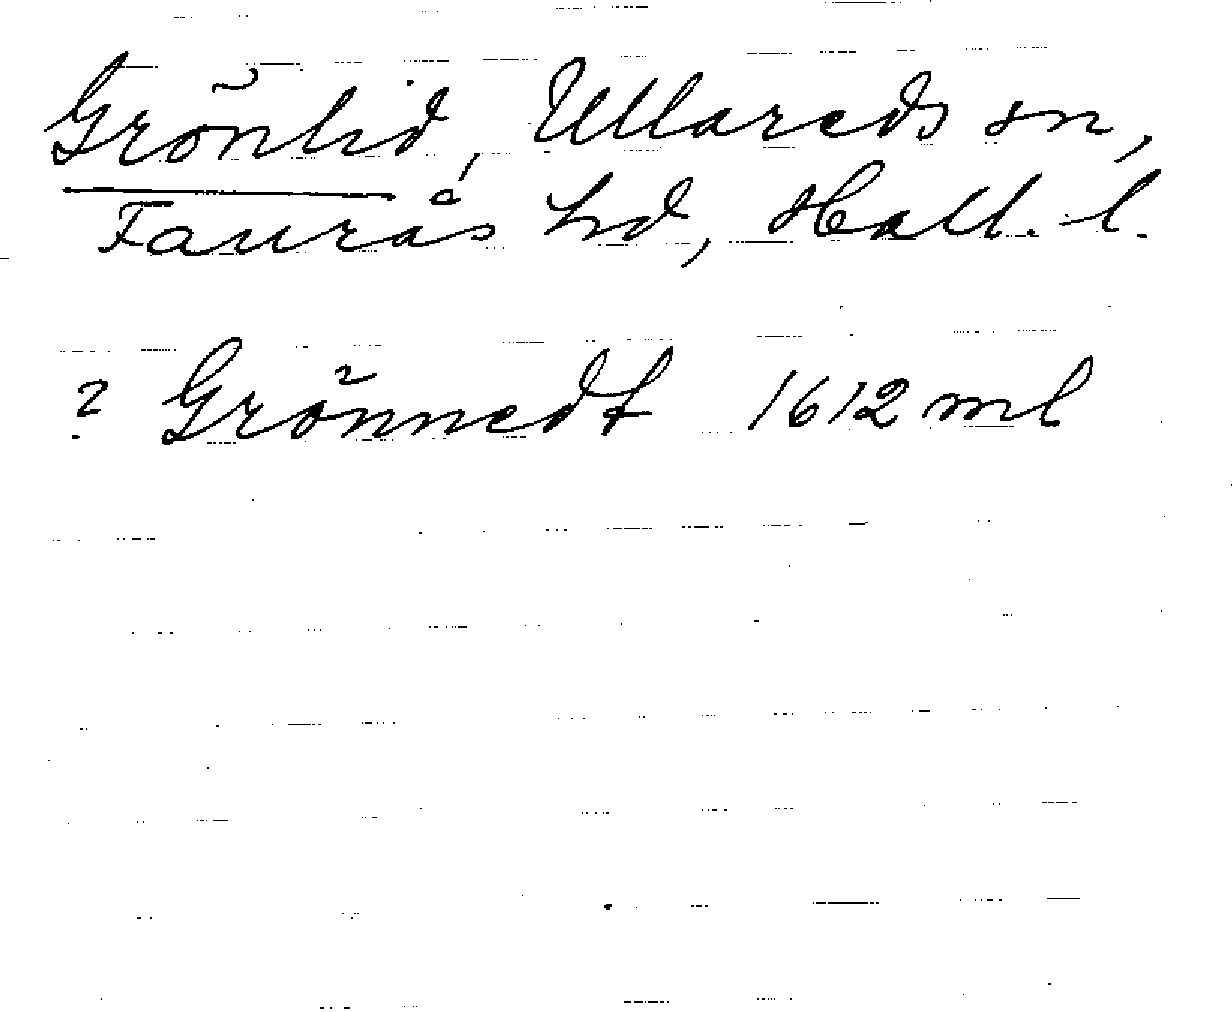 Grönlid, Ullareds sn,
Faurås hd, Hall. l.
? Grönnedt 1612 ml